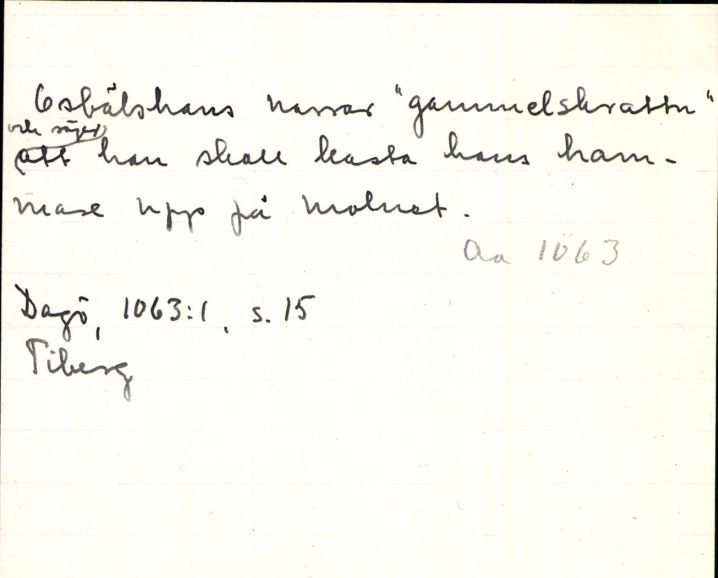 Osbålshans narrar "gammelskrattn"
och säger
att han skall kasta hans ham-
mare upp på molnet.
Aa 1063
Dagö, 1063:1, s. 15
Tiberg